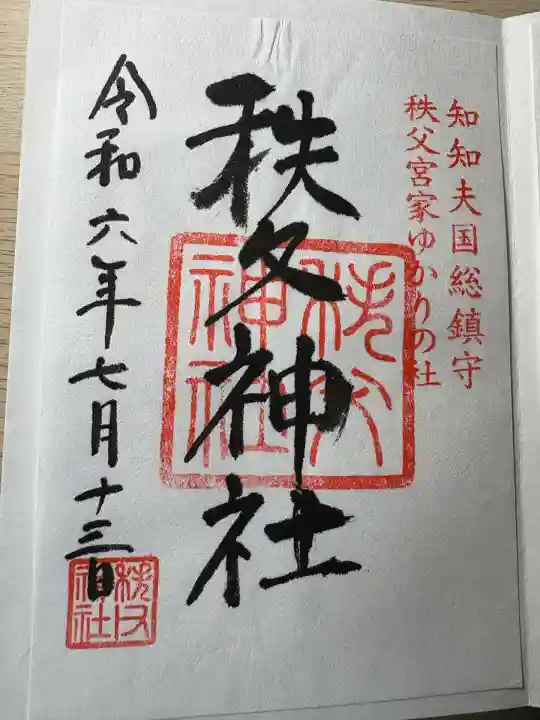 知知夫国総鎮守
秩父宮家ゆかりの社
秩父神社
秩父神社
令和六年七月十三日
秩父神社